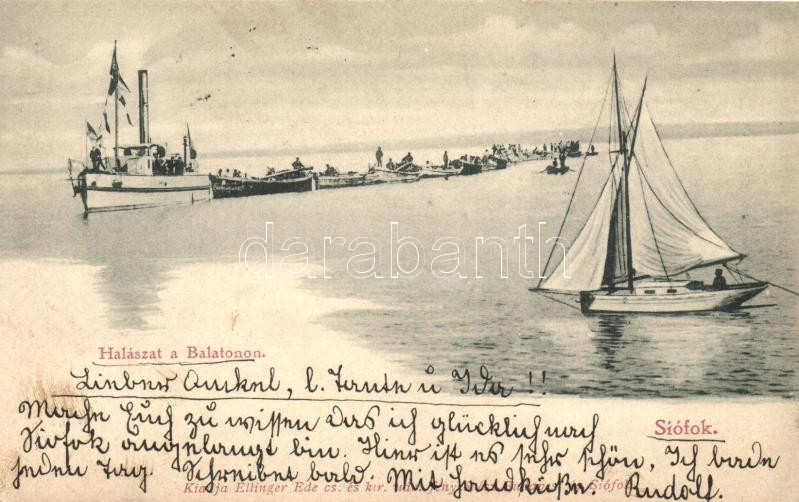 darabanth
Halászat a Balatonon.
Lieber Onkel, l. Tante u Ida !!
Mache Euch zu wissen das ich glücklich nach
Siófok.
Siofok angelangt bin. Hier ist es sehr schön, Ich bade
jeden Tag. Schreibet bald. Mit Handküßen. Rudolf.
Kiadja Ellinger Ede cs. és kir. Siófok